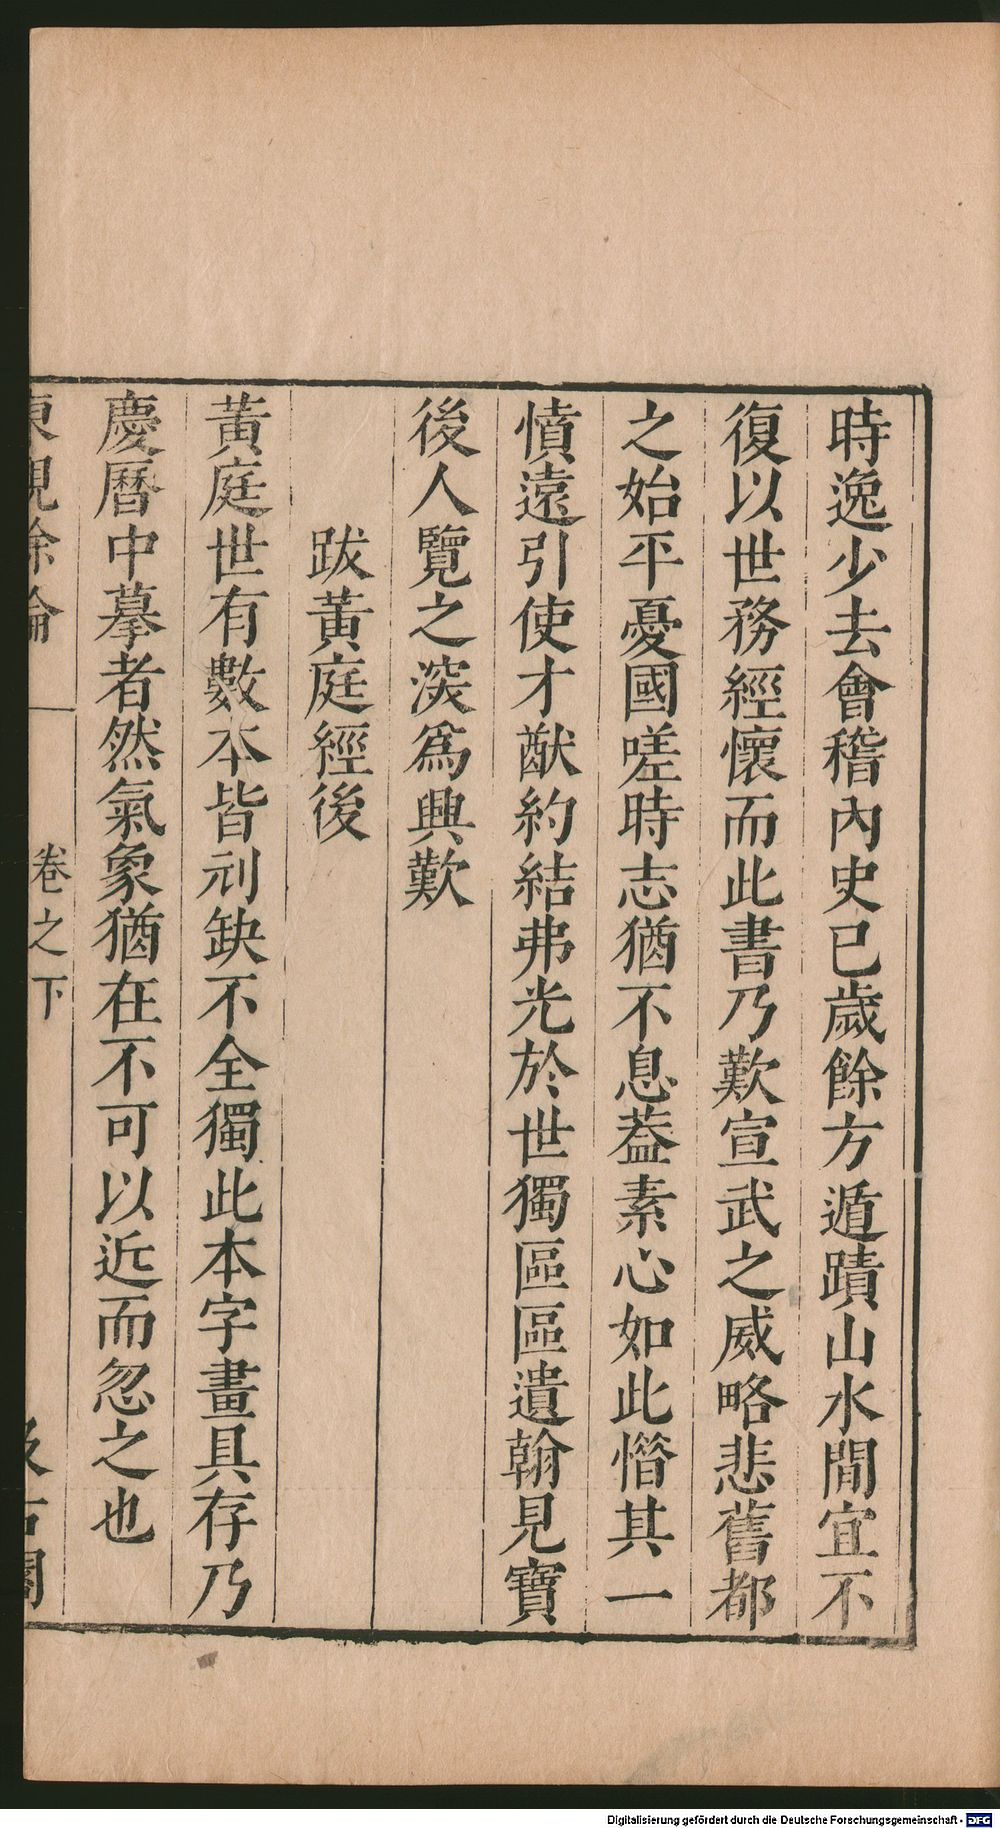 時逸少去會稽內史已歲餘方遁蹟山水間宜不
復以世務經懷而此書乃歎宣武之威略悲舊都
之始平憂國嗟時志猶不息葢素心如此惜其一
憤遠引使才猷約結弗光於世獨區區遺翰見寶
後人覽之深爲興歎
跋黃庭經後
黃庭世有數本皆刓缺不全獨此本字畫具存乃
慶曆中摹者然氣象猶在不可以近而忽之也
東觀餘論 卷之下 汲古閣
Digitalisierung gefördert durch die Deutsche Forschungsgemeinschaft - DFG